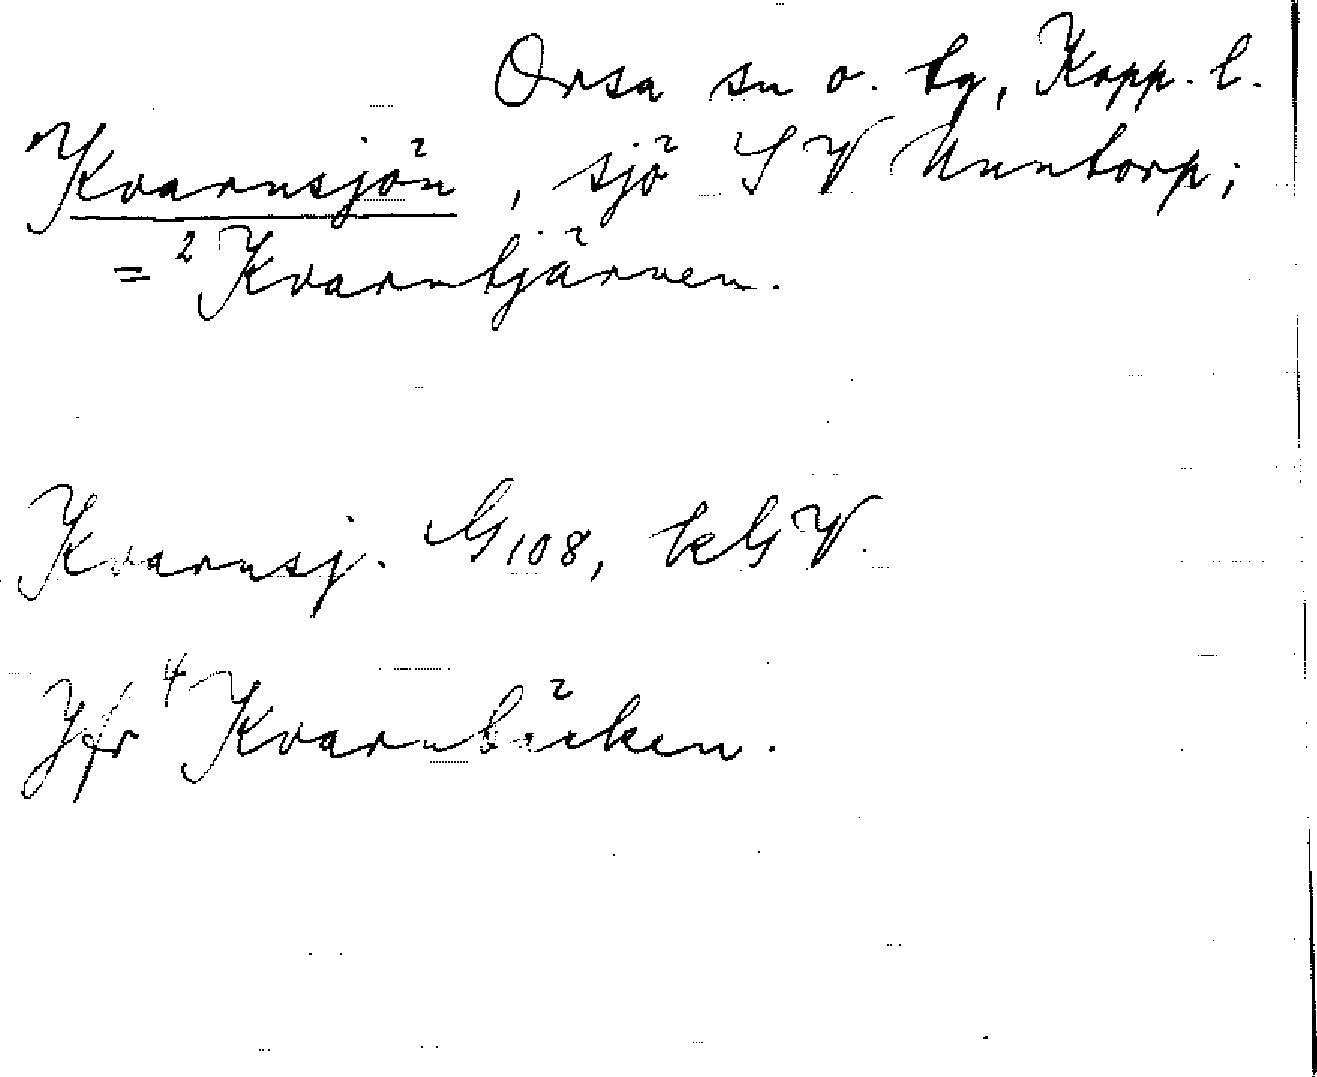 Orsa sn o. tg, Kopp. l.
Kvarnsjön, sjö SV Unntorp;
= ²Kvarntjärnen.
Kvarnsj. G108, kGV.
Jfr ⁴Kvarnbäcken.